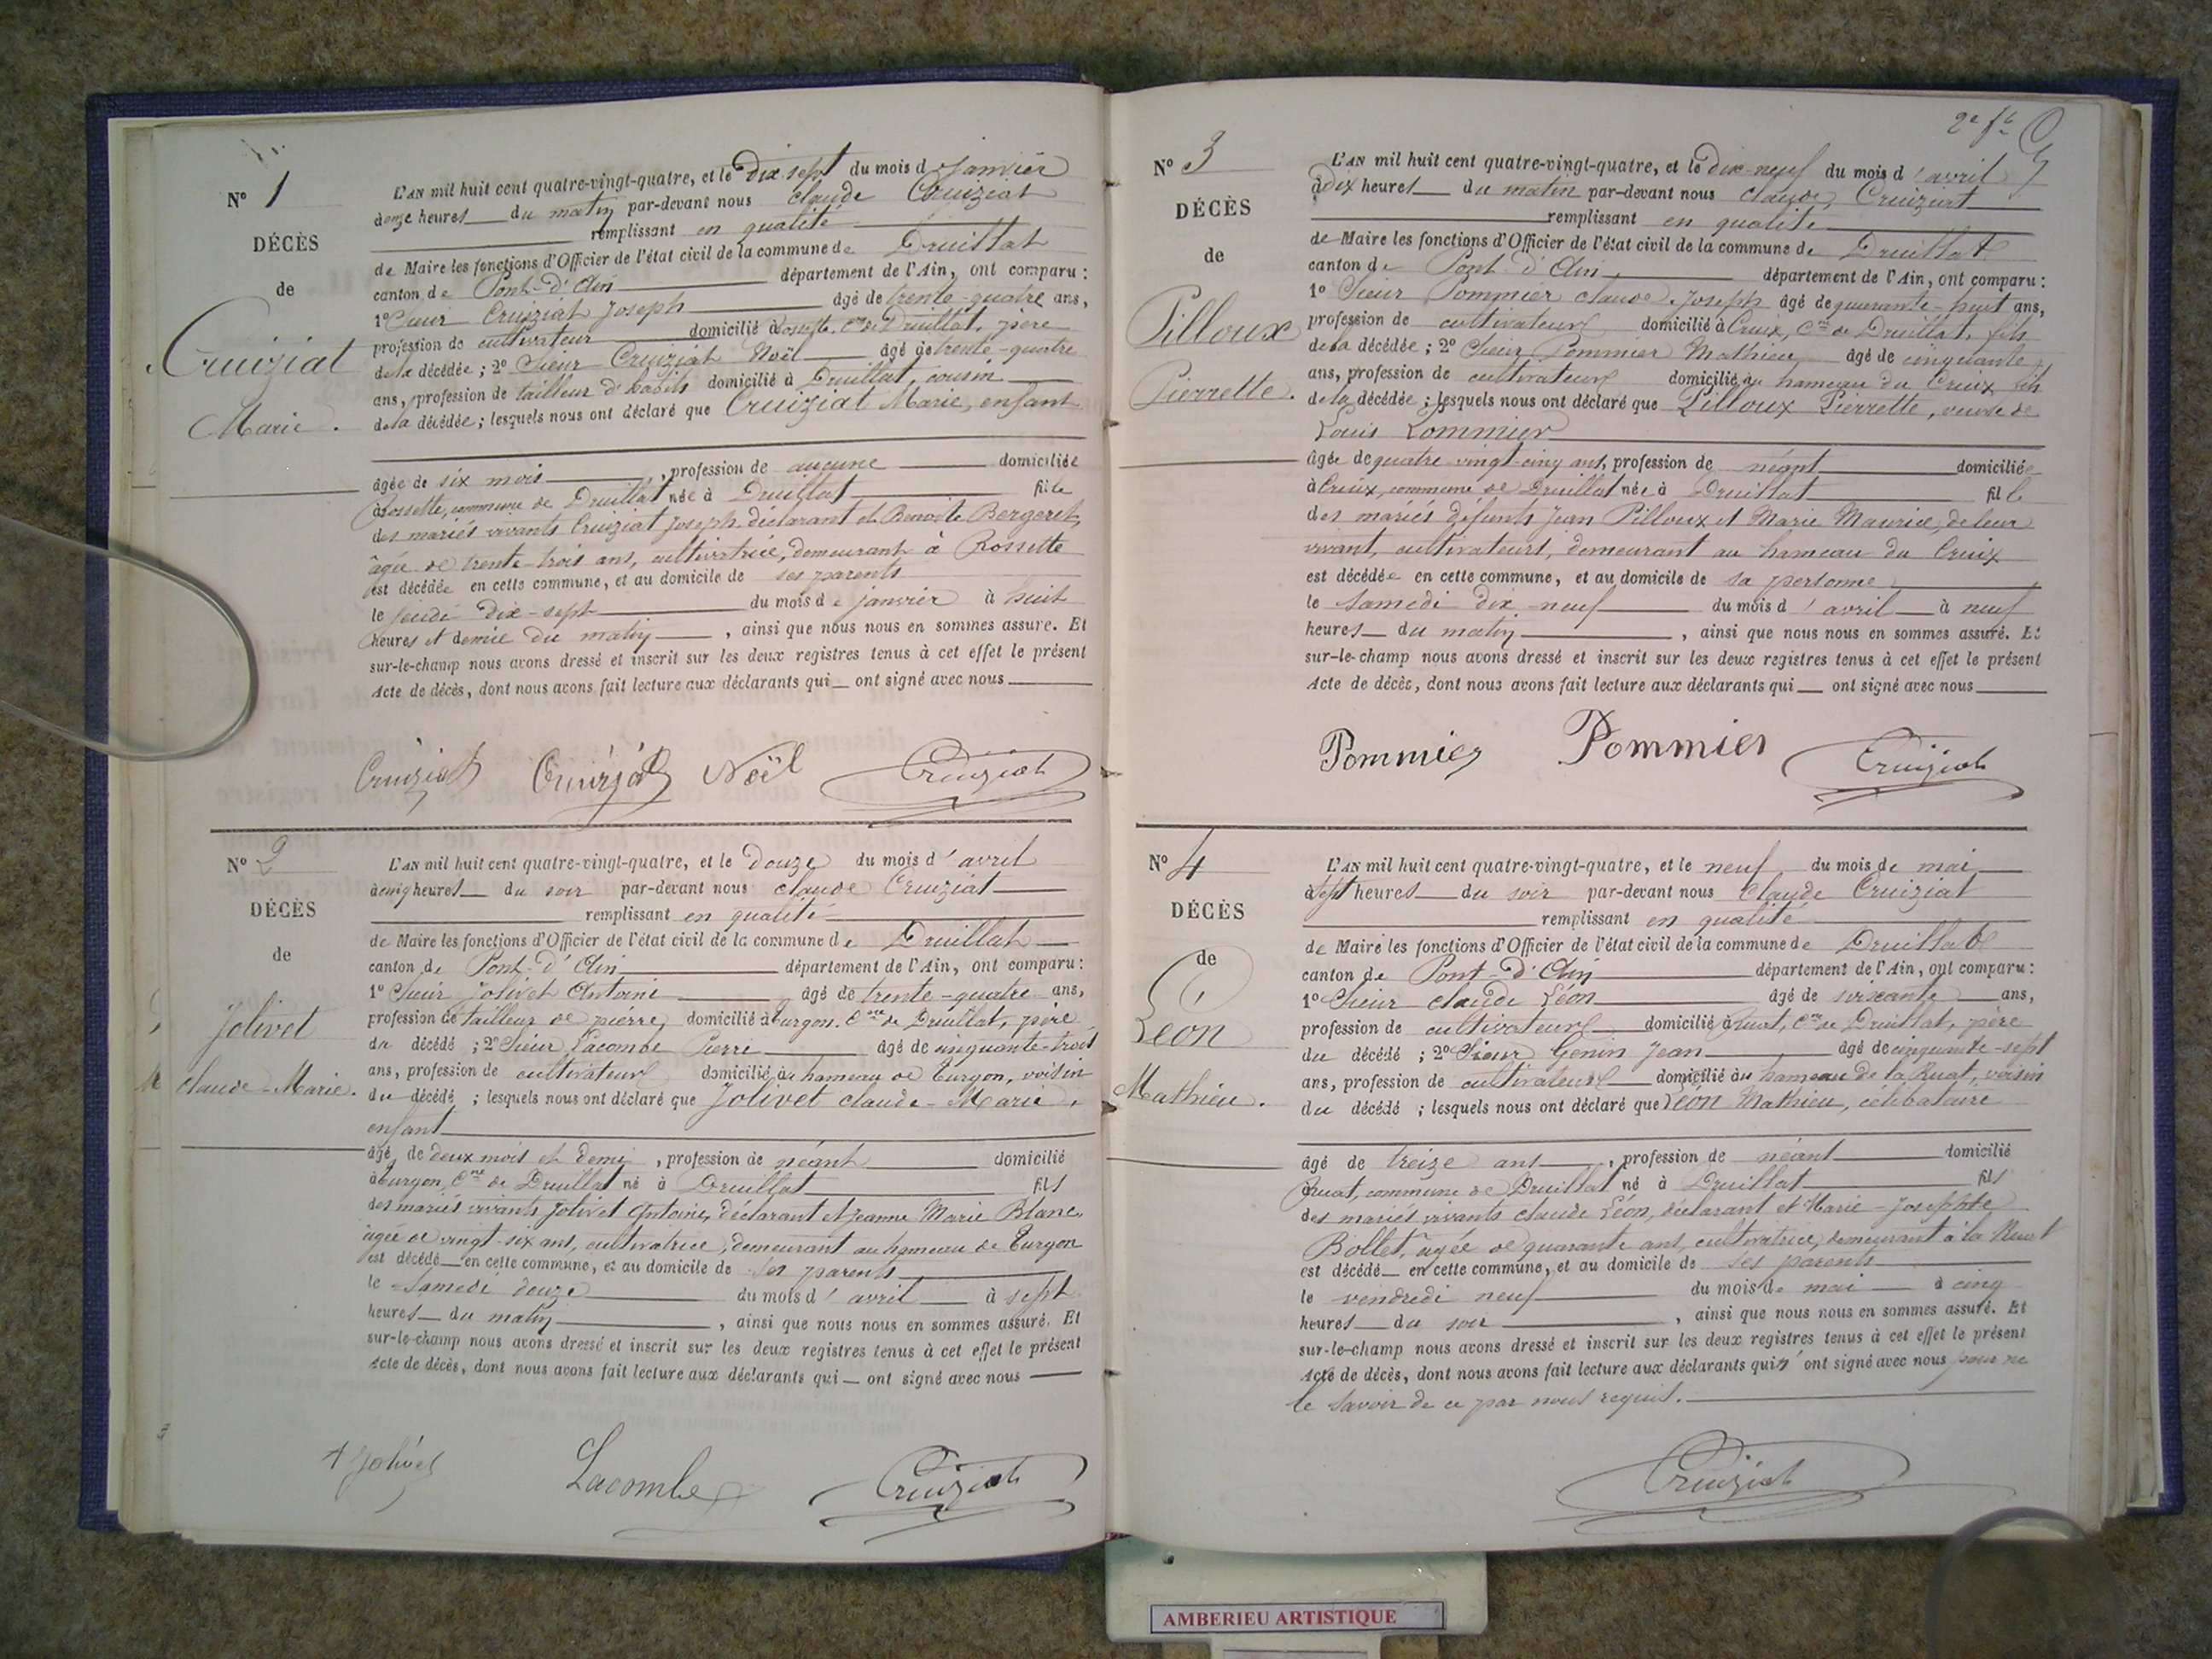 N° 1
DÉCÈS
de
Cruiziat
Marie.
L'AN mil huit cent quatre-vingt-quatre, et le dix sept du mois de janvier
heures du matin par-devant nous Claude Cruiziat
remplissant en qualité
de Maire les fonctions d'Officier de l'état civil de la commune de Druillat
canton de Pont-d'Ain département de l'Ain, ont comparu :
1° Sieur Cruiziat Joseph âgé de trente-quatre ans,
profession de cultivateur domicilié à Rossette, Cne de Druillat, père
de la décédée ; 2° Sieur Cruiziat Noël âgé de trente-quatre
ans, profession de tailleur d'habits domicilié à Druillat, cousin
de la décédée ; lesquels nous ont déclaré que Cruiziat Marie, enfant
âgée de six mois , profession de aucune domiciliée
à Rossette, commune de Druillat née à Druillat fille
des mariés vivants Cruiziat Joseph, déclarant et Benoite Bergeret,
âgée de trente-trois ans, cultivatrice, demeurant à Rossette
est décédée en cette commune, et au domicile de ses parents
le jeudi dix-sept du mois de janvier à huit
heures et demie du matin , ainsi que nous nous en sommes assuré. Et
sur-le-champ nous avons dressé et inscrit sur les deux registres tenus à cet effet le présent
Acte de décès, dont nous avons fait lecture aux déclarants qui ont signé avec nous
Cruiziat Cruiziat Noël Cruiziat
N° 2
DÉCÈS
de
Jolivet
Claude-Marie.
L'AN mil huit cent quatre-vingt-quatre, et le douze du mois d'avril
à cinq heures du soir par-devant nous Claude Cruiziat
remplissant en qualité
de Maire les fonctions d'Officier de l'état civil de la commune de Druillat
canton de Pont-d'Ain département de l'Ain, ont comparu :
1° Sieur Jolivet Antoine âgé de trente-quatre ans,
profession de tailleur de pierre, domicilié à Turgon, Cne de Druillat, père
du décédé ; 2° Sieur Lacombe Pierre âgé de cinquante-trois
ans, profession de cultivateur domicilié au hameau de Turgon, voisin
du décédé ; lesquels nous ont déclaré que Jolivet Claude-Marie,
enfant
âgé de deux mois et demi , profession de néant domicilié
à Turgon, Cne de Druillat né à Druillat fils
des mariés vivants Jolivet Antoine, déclarant et Jeanne Marie Blanc,
âgée de vingt-six ans, cultivatrice, demeurant au hameau de Turgon
est décédé en cette commune, et au domicile de ses parents
le samedi douze du mois d'avril à sept
heures du matin , ainsi que nous nous en sommes assuré. Et
sur-le-champ nous avons dressé et inscrit sur les deux registres tenus à cet effet le présent
Acte de décès, dont nous avons fait lecture aux déclarants qui ont signé avec nous
A Jolivet Lacombe Cruiziat
2e ft
N° 3
DÉCÈS
de
Pilloux
Pierrette.
L'AN mil huit cent quatre-vingt-quatre, et le dix-neuf du mois d'avril
à dix heures du matin par-devant nous Claude Cruiziat
remplissant en qualité
de Maire les fonctions d'Officier de l'état civil de la commune de Druillat
canton de Pont-d'Ain département de l'Ain, ont comparu :
1° Sieur Pommier Claude-Joseph âgé de quarante-huit ans,
profession de cultivateur domicilié à Creux, Cne de Druillat, fils
de la décédée ; 2° Sieur Pommier Mathieu âgé de cinquante
ans, profession de cultivateur domicilié au hameau du Creux, fils
de la décédée ; lesquels nous ont déclaré que Pilloux Pierrette, veuve de
Louis Pommier
âgée de quatre-vingt-cinq ans, profession de néant domiciliée
à Creux, commune de Druillat née à Druillat fille
des mariés défunts Jean Pilloux et Marie Maurice, de leur
vivant, cultivateurs, demeurant au hameau du Creux
est décédée en cette commune, et au domicile de sa personne
le samedi dix-neuf du mois d'avril à neuf
heures du matin , ainsi que nous nous en sommes assuré. Et
sur-le-champ nous avons dressé et inscrit sur les deux registres tenus à cet effet le présent
Acte de décès, dont nous avons fait lecture aux déclarants qui ont signé avec nous
Pommier Pommier Cruiziat
N° 4
DÉCÈS
de
Léon
Mathieu.
L'AN mil huit cent quatre-vingt-quatre, et le neuf du mois de mai
à sept heures du soir par-devant nous Claude Cruiziat
remplissant en qualité
de Maire les fonctions d'Officier de l'état civil de la commune de Druillat
canton de Pont-d'Ain département de l'Ain, ont comparu :
1° Sieur Claude Léon âgé de soixante ans,
profession de cultivateur domicilié à Ruat, Cne de Druillat, père
du décédé ; 2° Sieur Genin Jean âgé de cinquante-sept
ans, profession de cultivateur domicilié au hameau de la Ruat, voisin
du décédé ; lesquels nous ont déclaré que Léon Mathieu, célibataire
âgé de treize ans , profession de néant domicilié
à Ruat, commune de Druillat né à Druillat fils
des mariés vivants Claude Léon, déclarant et Marie-Josephte
Bollet, âgée de quarante ans, cultivatrice, demeurant à la Ruat
est décédé en cette commune, et au domicile de ses parents
le vendredi neuf du mois de mai à cinq
heures du soir , ainsi que nous nous en sommes assuré. Et
sur-le-champ nous avons dressé et inscrit sur les deux registres tenus à cet effet le présent
Acte de décès, dont nous avons fait lecture aux déclarants qui n'ont signé avec nous pour ne
le savoir de ce par nous requis.
Cruiziat
AMBERIEU ARTISTIQUE